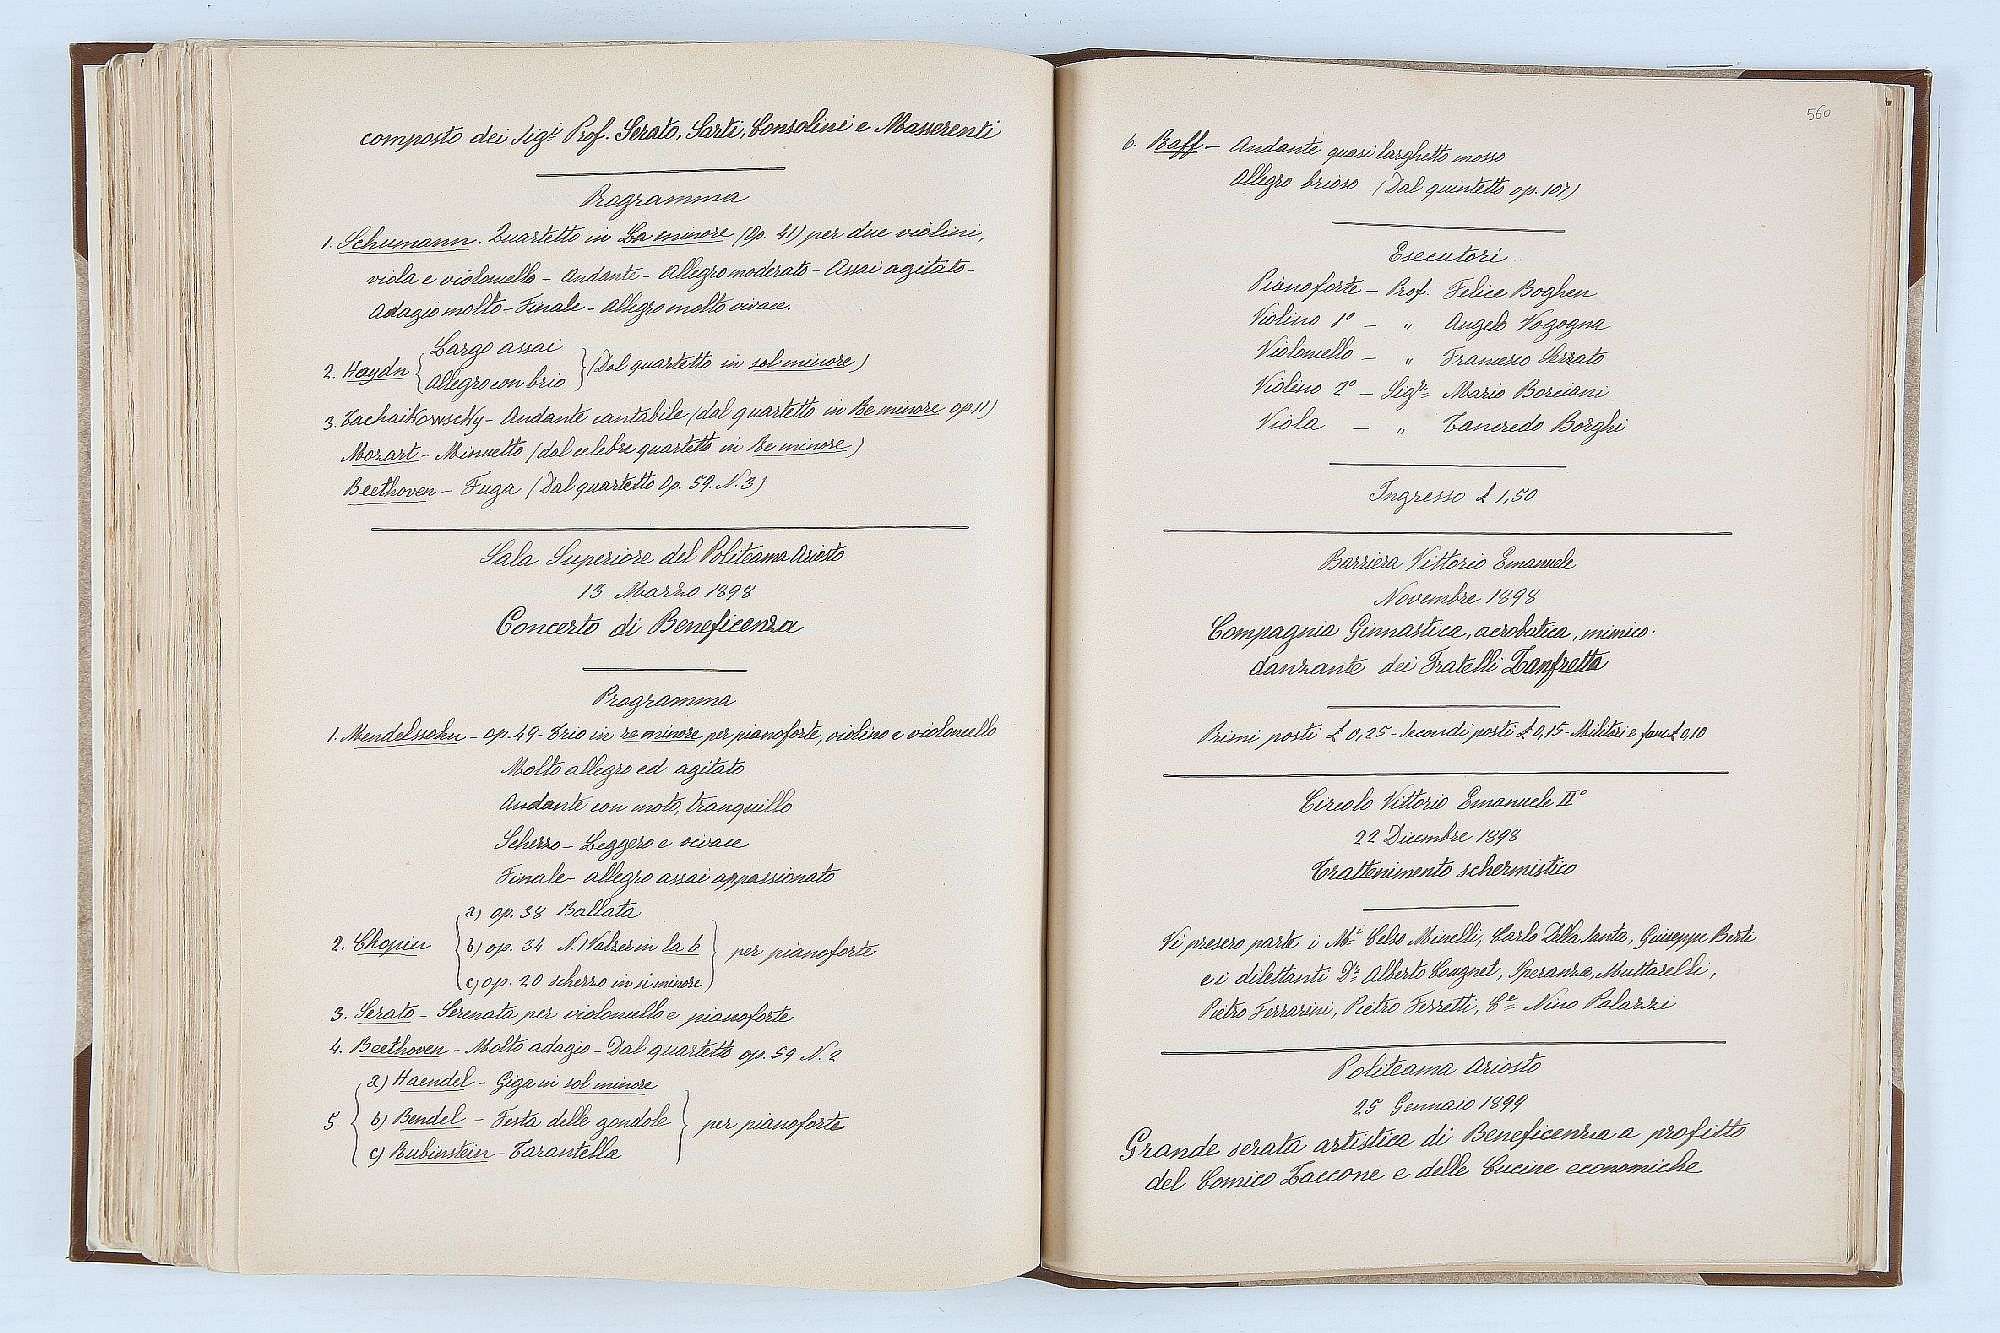 composto dei Sigⁱ Prof. Serato, Sarti, Consolini e Masserenti
Programma
1. Schumann. Quartetto in La minore (Op. 41) per due violini,
viola e violoncello - Andante - Allegro moderato - Assai agitato -
Adagio molto - Finale - Allegro molto vivace.
2. Haydn { Largo assai
Allegro con brio } (Dal quartetto in sol minore)
3. Tschaikowschy - Andante cantabile (dal quartetto in Re minore op 11)
Mozart - Minuetto (dal celebre quartetto in Re minore)
Beethoven - Fuga (Dal quartetto Op. 59. N. 3)
Sala Superiore del Politeama Ariosto
13 Marzo 1898
Concerto di Beneficenza
Programma
1. Mendelssohn - op. 49 - Trio in re minore per pianoforte, violino e violoncello
Molto allegro ed agitato
Andante con moto, tranquillo
Scherzo - Leggero e vivace
Finale - allegro assai appassionato
2. Chopin { a) op. 38 Ballata
b) op. 34 N. 1 Valzer in la b
c) op. 20 scherzo in si minore } per pianoforte
3. Serato - Serenata per violoncello e pianoforte
4. Beethoven - Molto adagio - Dal quartetto op. 59 N. 2
5 { a) Haendel - Giga in sol minore
b) Bendel - Festa delle gondole
c) Rubinstein - Tarantella } per pianoforte
560
6. Raff - Andante quasi larghetto mosso
Allegro brioso (Dal quintetto op. 107)
Esecutori
Pianoforte - Prof. Felice Boghen
Violino 1° - " Angelo Vogogna
Violoncello - " Francesco Serrato
Violino 2° - Sigʳ Mario Borciani
Viola - " Tancredo Borghi
Ingresso £ 1,50
Barriera Vittorio Emanuele
Novembre 1898
Compagnia Ginnastica, acrobatica, mimico-
danzante dei Fratelli Zanfretta
Primi posti £ 0,25 - Secondi posti £ 0,15 - Militari e fanc. £ 0,10
Circolo Vittorio Emanuele II°
22 Dicembre 1898
Trattenimento schermistico
Vi presero parte i Mⁱ Celso Minelli, Carlo Della Santa, Giuseppe Berti
e i dilettanti Dʳ Alberto Cougnet, Speranza, Muttarelli,
Pietro Ferrarini, Pietro Ferretti, Cᵉ Nino Palazzi
Politeama Ariosto
25 Gennaio 1899
Grande serata artistica di Beneficenza a profitto
del Comico Zaccone e delle Cucine economiche